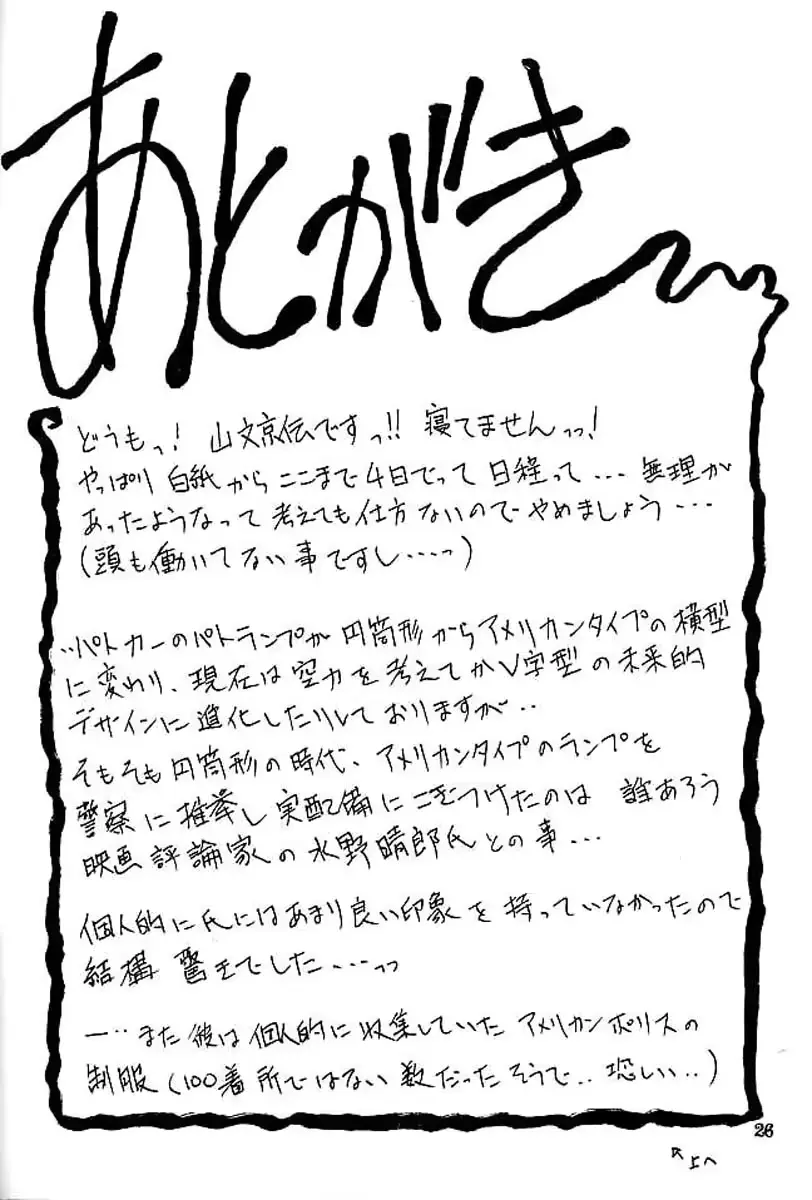 あとがき
どうもっ! 山文京伝ですっ!! 寝てませんっっ!
やっぱり 白紙から ここまで 4日でって 日程って… 無理が
あったようなって 考えても仕方ないので やめましょう…
(頭も働いてない事ですし‥‥っ)
‥パトカーのパトランプが 円筒形からアメリカンタイプの横型
に変わり、現在は空力を考えてかV字型の未来的
デザインに進化したりしておりますが‥
そもそも円筒形の時代、アメリカンタイプのランプを
警察に推挙し実配備にこぎつけたのは 誰あろう
映画評論家の水野晴郎氏との事…
個人的に氏にはあまり良い印象を持っていなかったので
結構 驚きでした‥‥っっ
ー‥また彼は個人的に収集していた アメリカンポリスの
制服(100着所ではない数だったそうで‥恐しい‥)
26
上へ